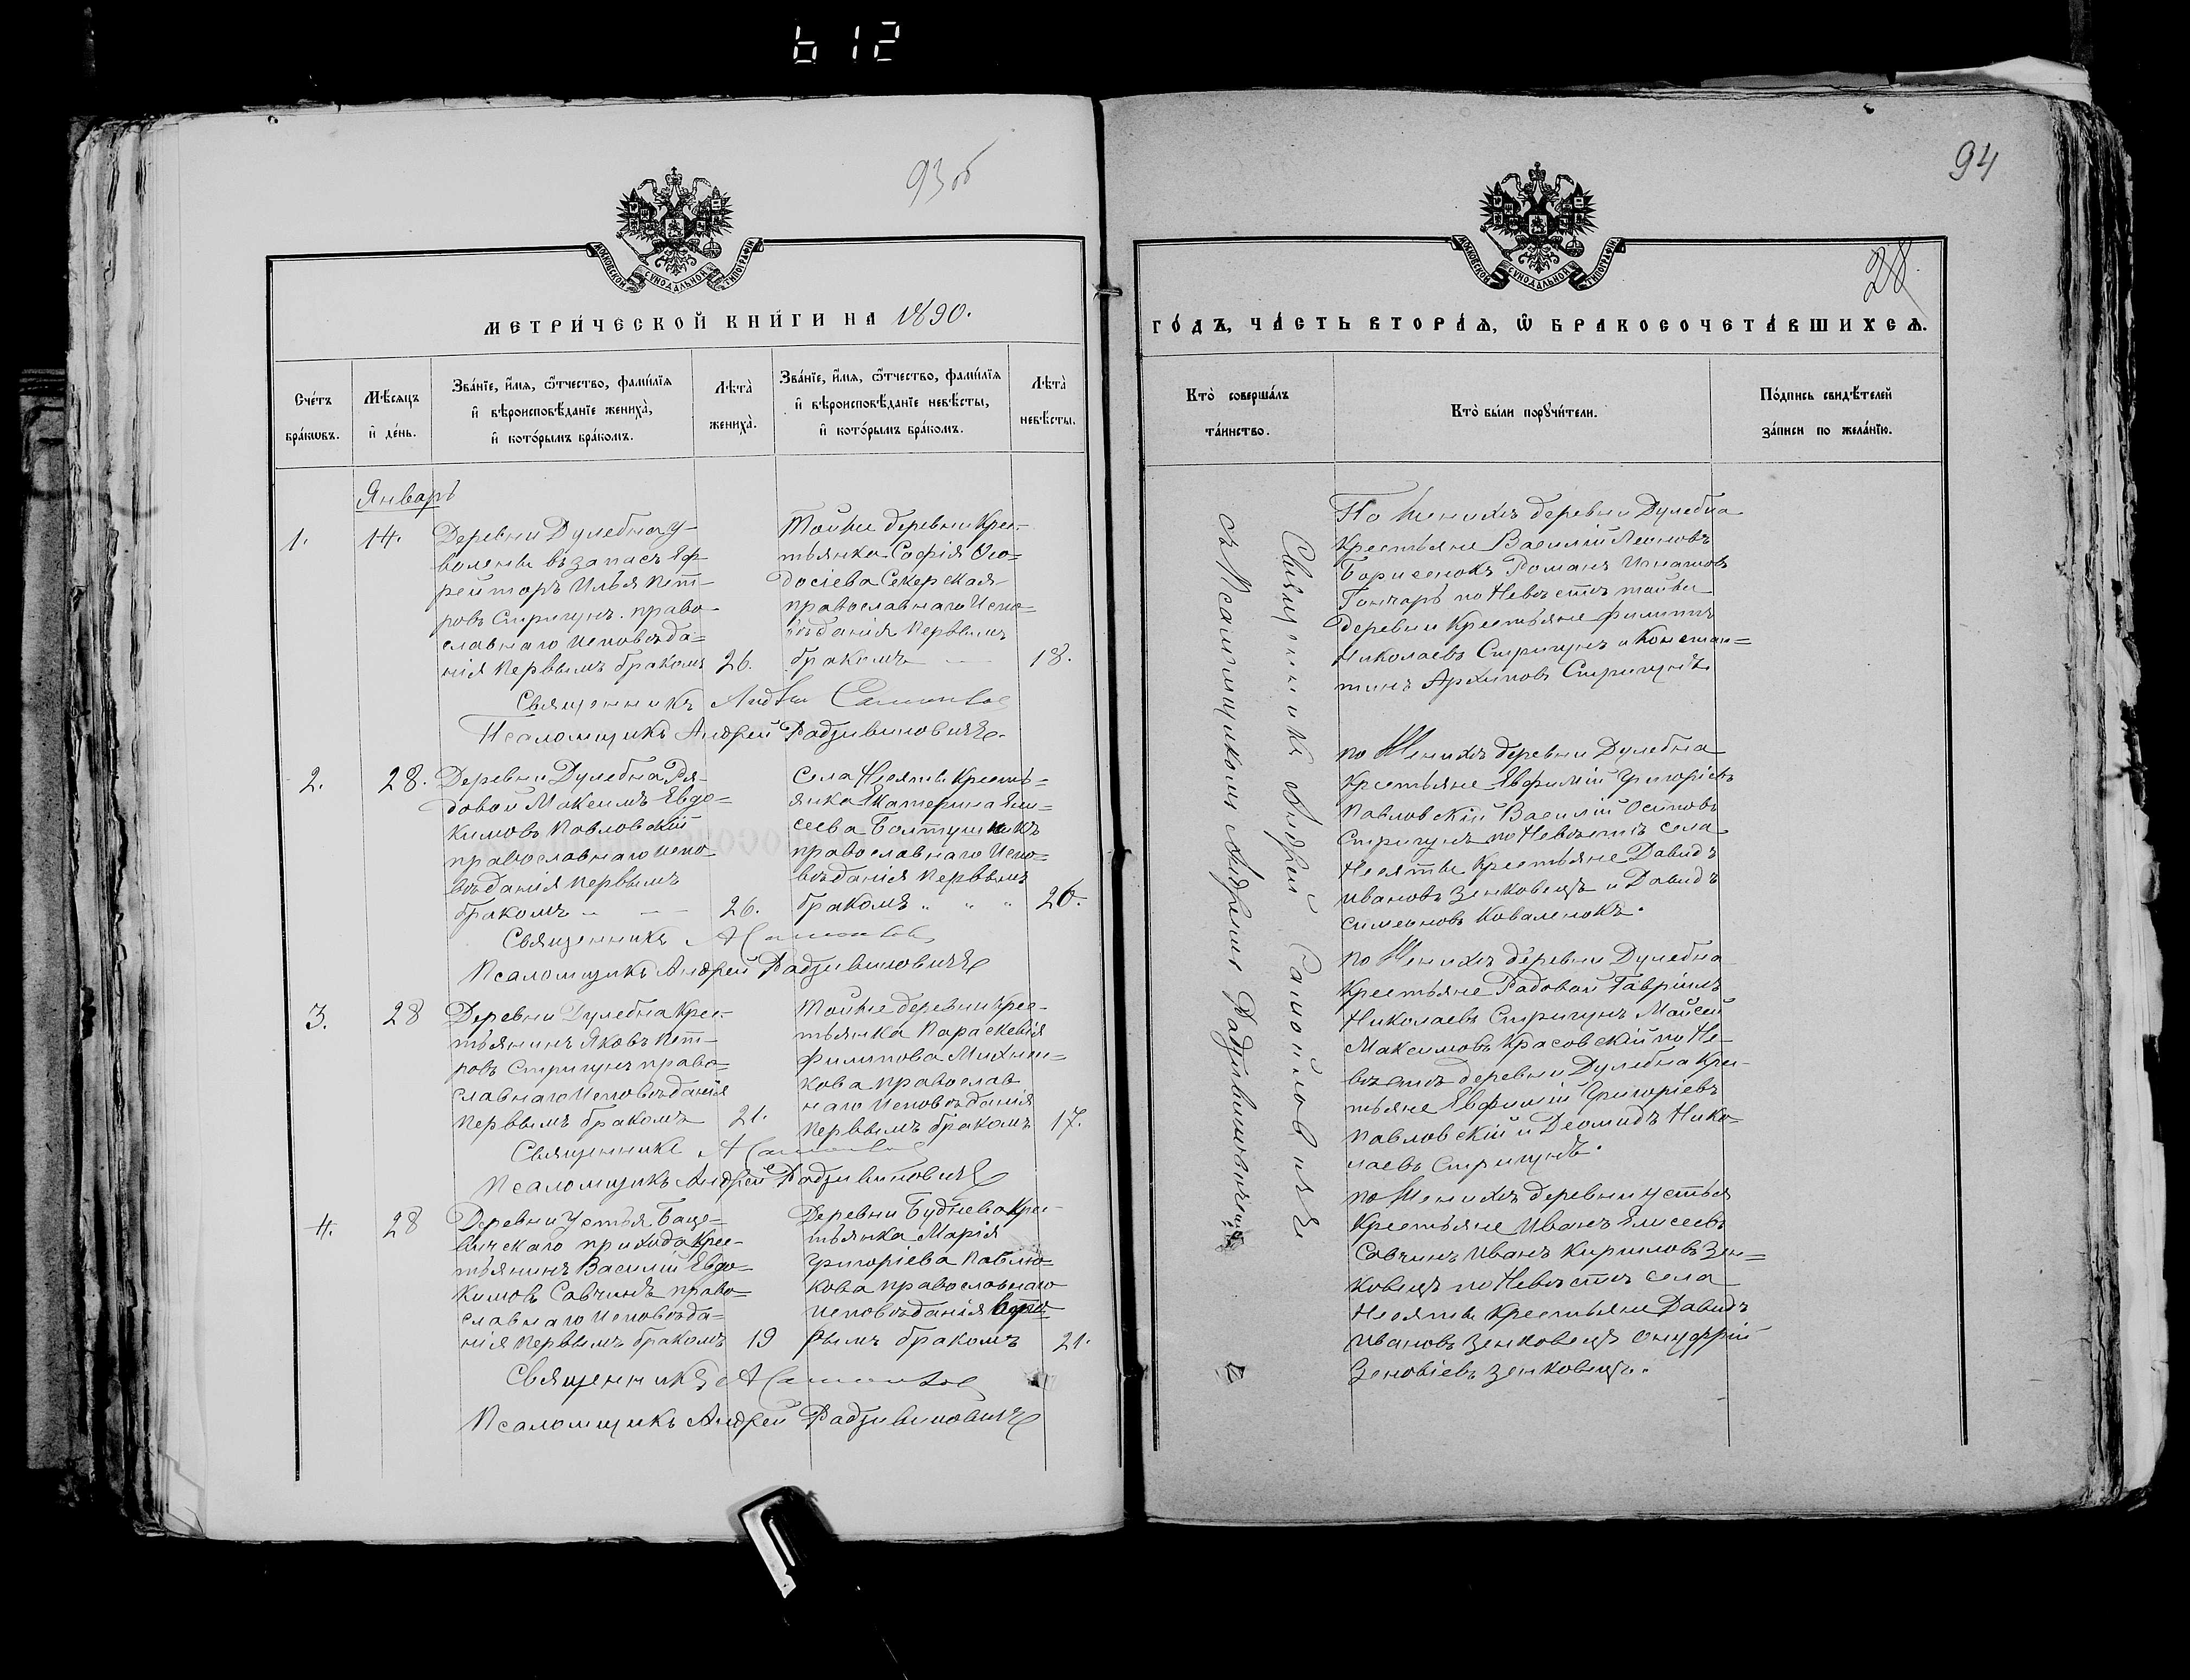 612
93 об
МОСКОВСКОЙ СѴНОДАЛЬНОЙ ТИПОГРАФІИ
МЕТРИ́ЧЕСКОЙ КНИ́ГИ НА 1890.
Сче́тъ бра́кѡвъ.
Мѣ́сяцъ и҆ де́нь.
Зва́нїе, и҆́мѧ, ѻ҆́тчество, фами́лїѧ и҆ вѣроисповѣ́данїе жениха̀, и҆ кото́рымъ бра́комъ.
Лѣта̀ жениха̀.
Зва́нїе, и҆́мѧ, ѻ҆́тчество, фами́лїѧ и҆ вѣроисповѣ́данїе невѣ́сты, и҆ кото́рымъ бра́комъ.
Лѣта̀ невѣ́сты.
Январь
1.
14.
Деревни Дулебна у-
воленый въ запасъ Еф-
рейторъ Илья Пет-
ровъ Стригунъ. право-
славнаго исповѣда=
нія первымъ бракомъ
26.
Тойже деревни Крес-
тьянка Софія Ѳео=
досіева Секерская
православнаго Испо=
вѣданія первымъ
бракомъ
18.
Священникъ Андрей Самойловъ
Псаломщикъ Андрей Радзивиловичъ.
2.
28.
Деревни Дулебна Ря-
довой Максимъ Евдо=
кимовъ Павловскій
православнаго испо-
вѣданія первымъ
бракомъ - - -
26.
Села Несяты Кресть=
янка Екатерина Ели=
сеева
православнаго Испо=
вѣданія первымъ
бракомъ " " "
20.
Священникъ
Псаломщикъ Андрей Радзивиловичъ
3.
28
Деревни Дулебна Крес-
тьянинъ Яковъ Пет-
ровъ Стригунъ право=
славнаго Исповѣданія
первымъ бракомъ
21.
Тойже деревни Крес-
тьянка Параскевія
Филиппова
кова православ
наго Исповѣданія
первымъ бракомъ
17.
Священникъ
Псаломщикъ Андрей Радзивиловичъ
4.
28
Деревни Устья Баце=
вичскаго прихода Крес-
тьянинъ Василій Евдо=
кимовъ Савчинъ право=
славнаго исповѣда=
нія первымъ бракомъ
19
Деревни Буднева Крес-
тьянка Марія
Григоріева Павлю=
кова православнаго
исповѣданія вто=
рымъ бракомъ
21.
Священникъ
Псаломщикъ Андрей Радзивиловичъ
94
28.
МОСКОВСКОЙ СѴНОДАЛЬНОЙ ТИПОГРАФІИ
ГО́ДЪ, ЧА́СТЬ ВТОРА́Ѧ, Ѡ҆ БРАКОСОЧЕТА́ВШИХСѦ.
Кто̀ соверша́лъ та́инство.
Кто̀ бы́ли порꙋчи́тели.
По́дпись свидѣ́телей за́писи по жела́нїю.
Священникъ Андрей Самойловичъ
съ Псаломщикомъ Андреемъ Радзивиловичемъ
По Женихѣ деревни Дулебна
Крестьяне Василій Леоновъ
Борисенокъ Романъ Игнатовъ
Гончаръ по Невѣстѣ тойже
деревни Крестьяне Филиппъ
Николаевъ Стригунъ и Констан=
тинъ Архиповъ Стригунъ.
по Женихѣ деревни Дулебна
Крестьяне Евфимій Григоріевъ
Павловскій Василій Осиповъ
Стригунъ по Невѣстѣ села
Несяты Крестьяне Давидъ
Ивановъ Зенковецъ и Давидъ
Симеоновъ Коваленокъ.
по Женихѣ деревни Дулебна
Крестьяне Рядовой Гавріилъ
Николаевъ Стригунъ Мойсей
Максимовъ Красовскій по Не-
вѣстѣ деревни Дулебна Крес-
тьяне Евфимій Григоріевъ
Павловскій и Деомидъ Нико=
лаевъ Стригунъ.
по Женихѣ деревни Устья
Крестьяне Иванъ Елисеевъ
Савчинъ Иванъ Кириловъ Зен=
ковецъ по Невѣстѣ села
Несяты Крестьяне Давидъ
Ивановъ Зенковецъ Онуфрій
Зеновіевъ Зенковецъ.